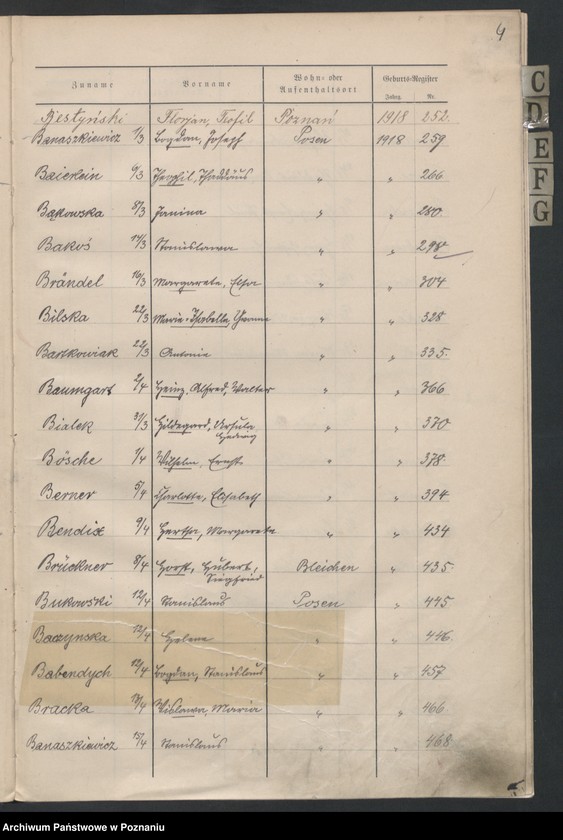 4
Zuname Vorname Wohn- oder Aufenthaltsort Geburts-Register
Jahrg. Nr.
Bestyński Florjan, Teofil Poznań 1918 252.
Banaszkiewicz 1/3 Bogdan, Joseph Posen 1918 259
Baierlein 6/3 Theophil, Thaddäus " " 266
Bąkowska 8/3 Janina " " 280
Bakoś 14/3 Stanislawa " " 298
Brändel 16/3 Margarete, Elsa " " 304
Bilska 22/3 Maria-Isabella " " 328
Bartkowiak 22/3 Antonie " " 335.
Baumgart 2/4 Heinz, Alfred, Walter " " 366
Bialek 31/3 Hildegard, Ursula
Hedwig " " 370
Bösche 1/4 Wilhelm, Ernst " " 378.
Berner 5/4 Charlotte, Elisabeth " " 394
Bendix 9/4 Hertha, Margarete " " 434
Brückner 8/4 Horst, Hubert,
Siegfried Bleichen " 435.
Bukowski 12/4 Stanislaus Posen " 445
Baczynska 12/4 Helene " " 446.
Babendych 12/4 Bogdan, Stanislaus " " 457
Bracka 13/4 Wislawa, Maria " " 466
Banaszkiewicz 15/4 Stanislaus " " 468
C
D
E
F
G
Archiwum Państwowe w Poznaniu